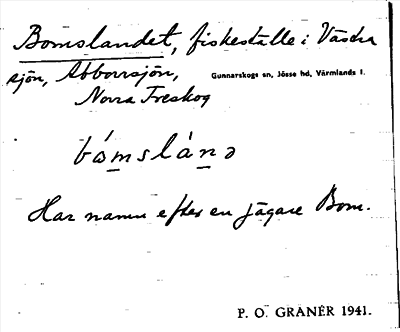 Bomslandet, fiskeställe i Västra
sjön, Abborrsjön,
Gunnarskogs sn, Jösse hd, Värmlands l.
Norra Treskog
bómslánə
Har namn efter en jägare Bom.
P. O. GRANÉR 1941.